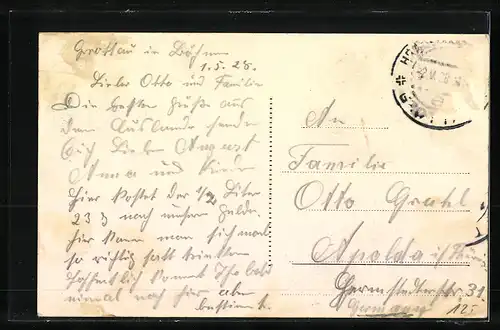 Grottau in Böhmen
1.5.28.
Lieber Otto und Familie
Die besten Grüße aus
dem Auslande sendet
Euch Lieben August
Anna und Kinder
hier kostet der 1/2 Liter
23 nach unserem Gelde.
hier kann man sich mal
so richtig satt trinken
hoffentlich kommt Ihr bald
einmal nach hier aber
bestimmt.
An
Familie
Otto Grahl
Apolda i/ Thür.
Hermstedterstr. 31
Germany
125